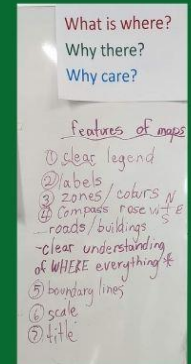 What is where?
Why there?
Why care?
features of maps
① clear legend
② labels
③ zones/colours
④ compass rose N W E S
roads/buildings
-clear understanding
of WHERE everything is
⑤ boundary lines
⑥ scale
⑦ title